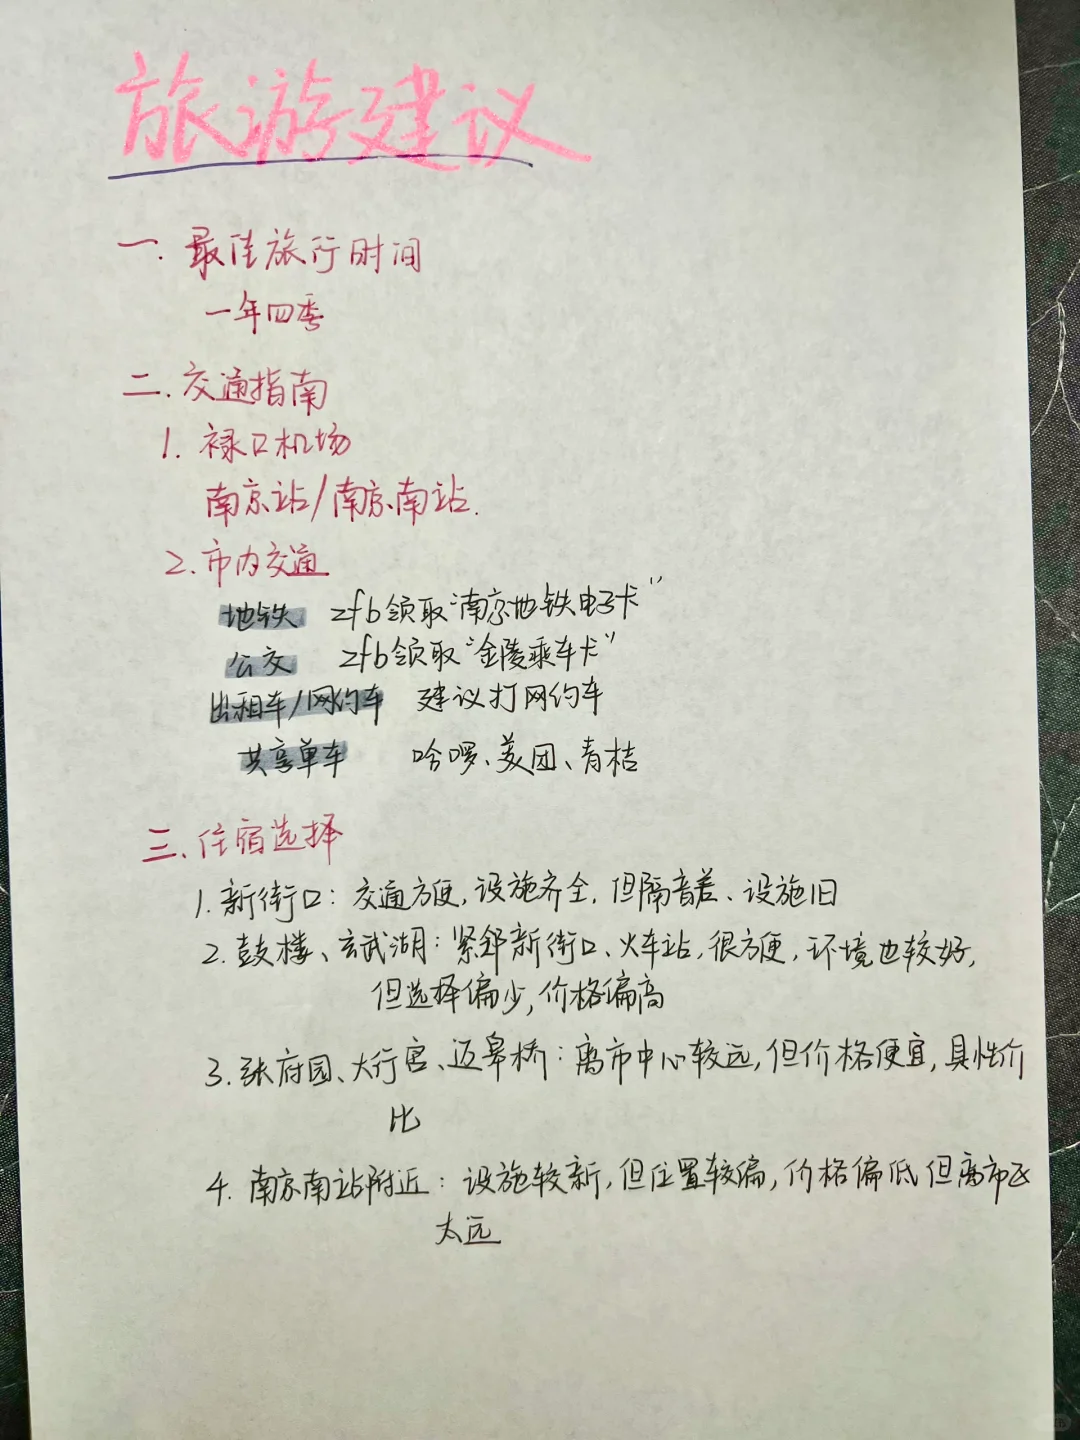 旅游建议
一. 最佳旅行时间
一年四季
二. 交通指南
1. 禄口机场
南京站/南京南站.
2. 市内交通
地铁 zfb领取“南京地铁电子卡”
公交 zfb领取“金陵乘车卡”
出租车/网约车 建议打网约车
共享单车 哈啰、美团、青桔
三、住宿选择
1. 新街口：交通方便，设施齐全，但隔音差、设施旧
2. 鼓楼、玄武湖：紧邻新街口、火车站，很方便，环境也较好，
但选择偏少，价格偏高
3. 张府园、大行宫、迈皋桥：离市中心较远，但价格便宜，具性价
比
4. 南京南站附近：设施较新，但位置较偏，价格偏低但离市区
太远